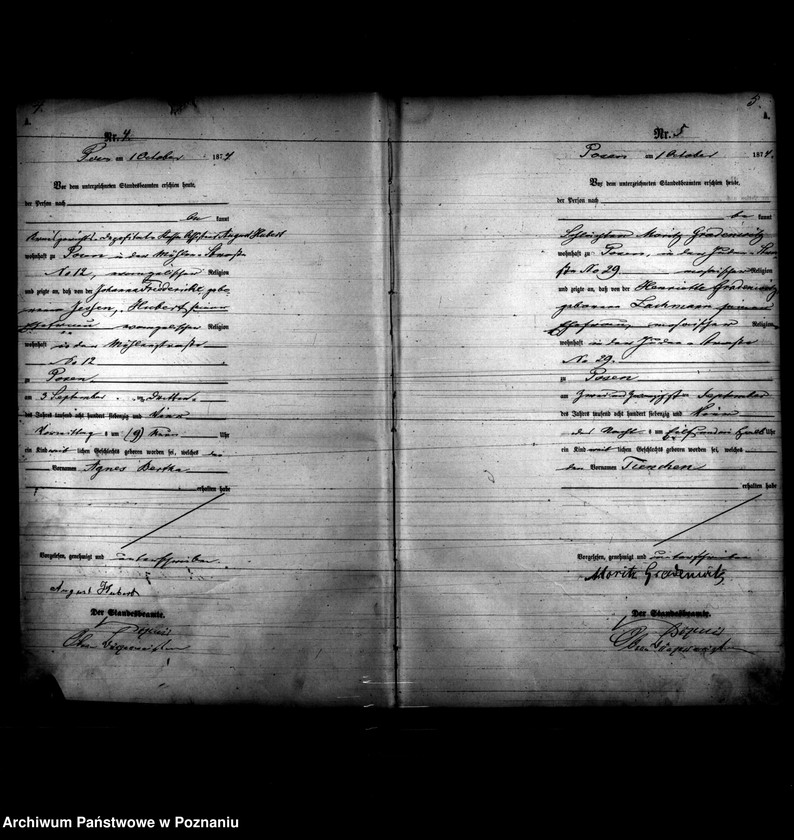 4.
A.
Nr. 4.
Posen am 1 October 1874
Vor dem unterzeichneten Standesbeamten erschien heute,
der Person nach
kannt
August Hubert
wohnhaft zu Posen in der Mühlen Straße
No 12, evangelischer Religion
und zeigte an, daß von der Johanna Friedericke gebo
renen Hubert seiner
Ehefrau evangelischer Religion
wohnhaft in der Mühlenstraße
No 12
zu Posen
am 3 September
des Jahres tausend acht hundert siebenzig und Vier
Vormittag um (9) Neun Uhr
ein Kind weiblichen Geschlechts geboren worden sei, welches
Vornamen Agnes Bertha
erhalten habe
Vorgelesen, genehmigt und unterschrieben
August Hubert
Der Standesbeamte.
Ober Bürgermeister
5.
A.
Nr. 5
Posen am 1 October 1874.
Vor dem unterzeichneten Standesbeamten erschien heute,
der Person nach
be kannt
Moritz Gradenwitz
wohnhaft zu Posen, in der Juden-Stra
ße No 29. mosaischer Religion
und zeigte an, daß von der Henriette Gradenwitz
geborenen Lachmann seiner
Ehefrau, mosaischer Religion
wohnhaft in der Juden-Straße
No 29.
zu Posen
am Zwei und Zwanzigsten September
des Jahres tausend acht hundert siebenzig und Vier
der Nacht um Uhr
ein Kind weiblichen Geschlechts geboren worden sei, welches
den Vornamen Tienchen
erhalten habe
Vorgelesen, genehmigt und unterschrieben
Moritz Gradenwitz
Der Standesbeamte.
Ober Bürgermeister
Archiwum Państwowe w Poznaniu